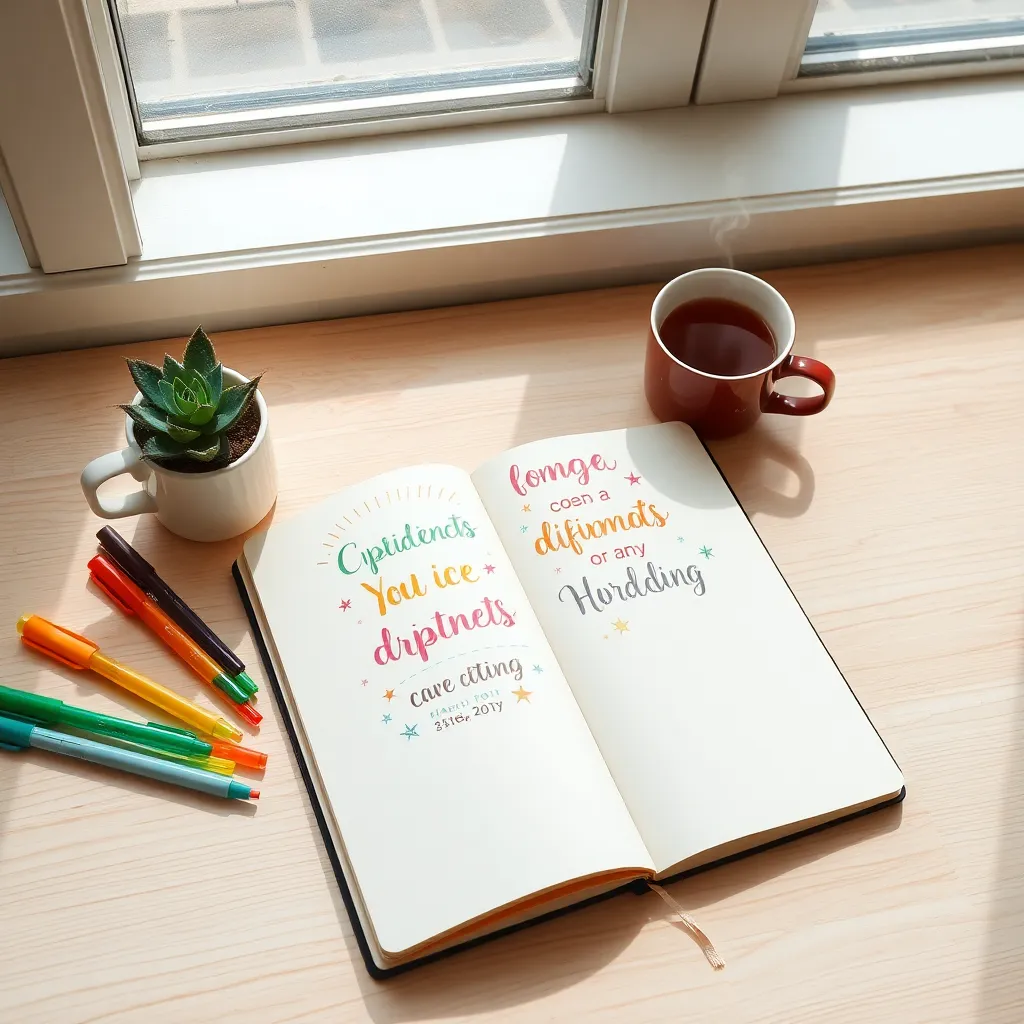 Cpridencts
You ice
driptnets
care citing
fomge
coen a
difiomots
or any
Hurdding